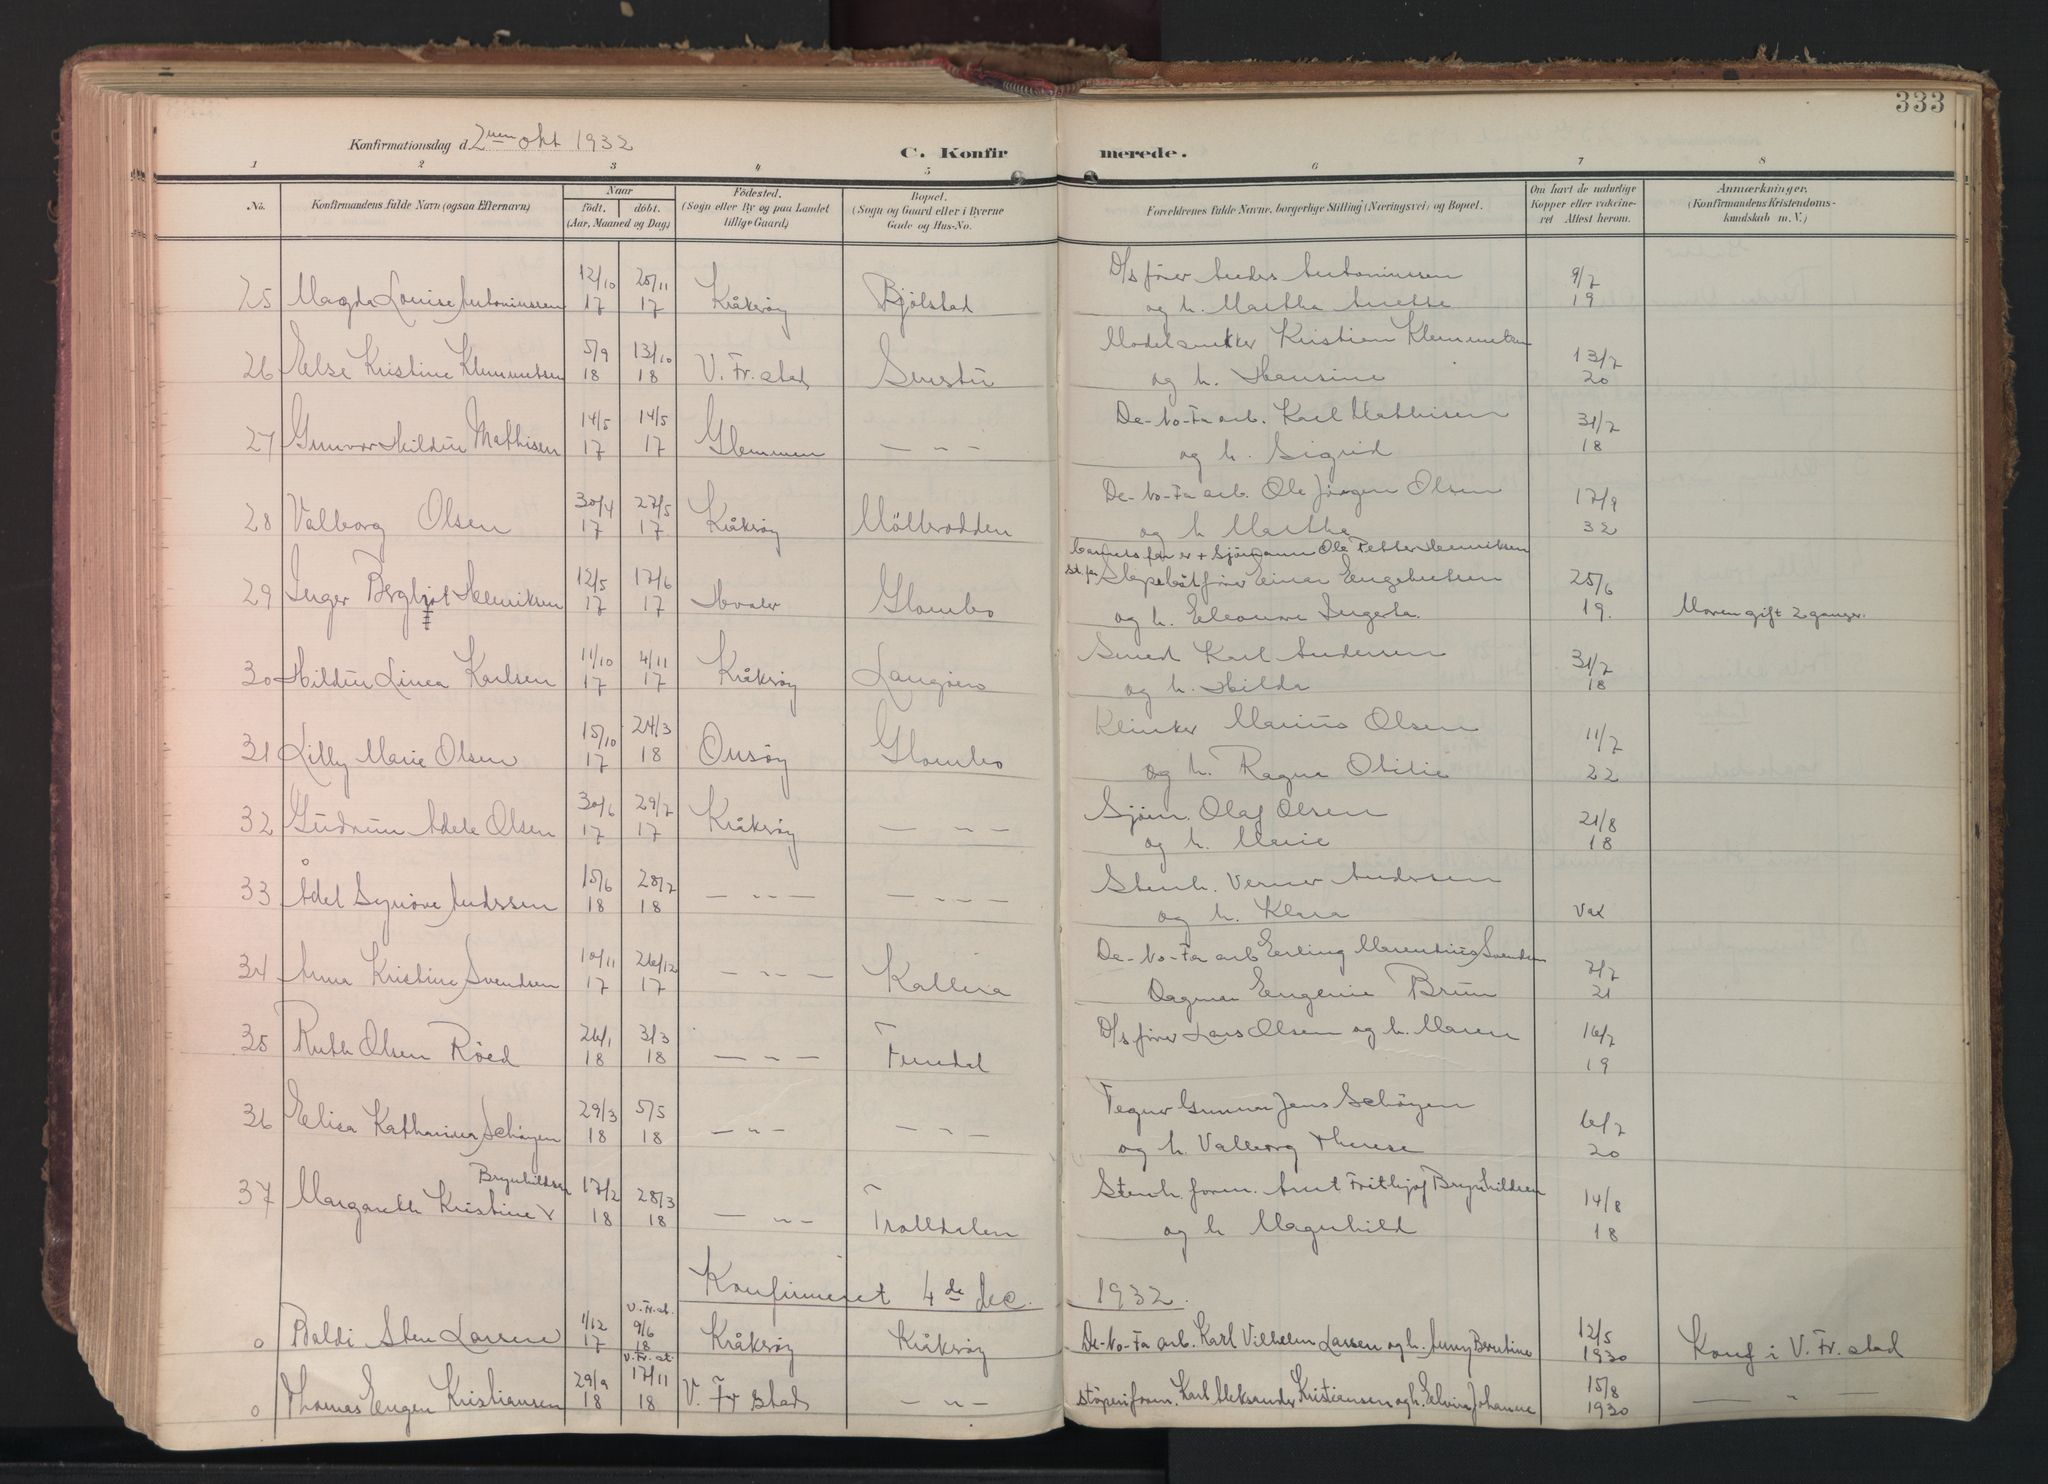 333
Konfirmationsdag d. 2nen okt 1932
C. Konfirmerede.
1 2 3 4 5 6 7 8
No. Konfirmandens fulde Navn (ogsaa Efternavn). Naar født. døbt. (Aar, Maaned og Dag) Fødested. (Sogn eller By og paa Landet tillige Gaard) Bopæl. (Sogn og Gaard eller i Byerne Gade og Hus-No. Forældrenes fulde Navne, borgerlige Stilling (Næringsvei) og Bopæl. Om havt de naturlige Kopper eller vaccineret Attest herom. Anmærkninger. (Konfirmandens Kristendomskundskab m. V.)
25 Magda Louise Antoniussen 12/10 17 25/11 17 Kråkrøy Bjölstad D/s förer Anders Antoniussen og h. Martha Anette 9/7 19
26 Else Kristine Klemmetsen 5/9 18 13/10 18 V. Fr. stad Smertu Modelsnekker Kristian Klemmetsen og h. Hansine 13/7 20
27 Gunvor Hildur Mathisen 14/5 17 14/5 17 Glemmen — " — De-No-Fa arb. Karl Mathisen og h. Sigrid 31/7 18
28 Valborg Olsen 30/4 17 27/5 17 Kråkrøy Mölleodden De-No-Fa arb. Ole Jörgen Olsen og h Martha 17/9 32
29 Inger Bergljot Henriksen 12/5 17 17/6 17 Hvaler Glombo barnets far er + Sjömann Ole Petter Henriksen st. far Slepebåtförer Einar Engebretsen og h. Eleonore Ingerta. 25/6 19. Moren gift 2 ganger.
30 Hildur Linea Karlsen 11/10 17 4/11 17 Kråkrøy Langøen Smed Karl Andersen og h. Hilda 31/7 18
31 Lilly Marie Olsen 15/10 17 24/3 18 Onsøy Glombo Klinker Marius Olsen og h. Ragna Otilie 11/7 22
32 Gudrun Adele Olsen 30/6 17 29/7 17 Kråkrøy — " — Sjöm. Olaf Olsen og h. Marie 21/8 18
33 Ådel Synøve Anderssen 15/6 18 28/7 18 — " — — " — Stenh. Verner Andersen og h. Klara Vax
34 Anna Kristine Svendsen 10/11 17 26/12 17 — " — Kallera De-No-Fa arb Erling Marentius Svendsen Dagmar Eugenie Brun 7/7 21
35 Ruth Olsen Röed 26/1 18 3/3 18 — " — Fundal D/s förer Lars Olsen og h. Maren 16/7 19
36 Elisa Katharina Schøyen 29/3 18 5/5 18 — " — — " — Tegner Gunnar Jens Schøyen og h. Valborg Therese 6/7 20
37 Margareth Kristine Brynhildsen 17/2 18 28/3 18 — " — Trolldalen Stenh. form. Arnt Frithjof Brynhildsen og h Magnhild 14/8 18
Konfirmeret 4de dec. 1932.
0 Baldi Sten Larsen 1/12 17 V. Fr. st. 9/6 18 Kråkrøy Kråkrøy De-No-Fa arb. Karl Vilhelm Larsen og h. Anny Berntine 12/5 1930 Konf i V. Fr. stad
0 Thomas Eugen Kristiansen 29/9 18 V. Fr. st. 17/11 18 V. Fr stad — " — støperiform. Karl Aleksander Kristiansen og h. Elvira Johanne 15/8 1930 — " —